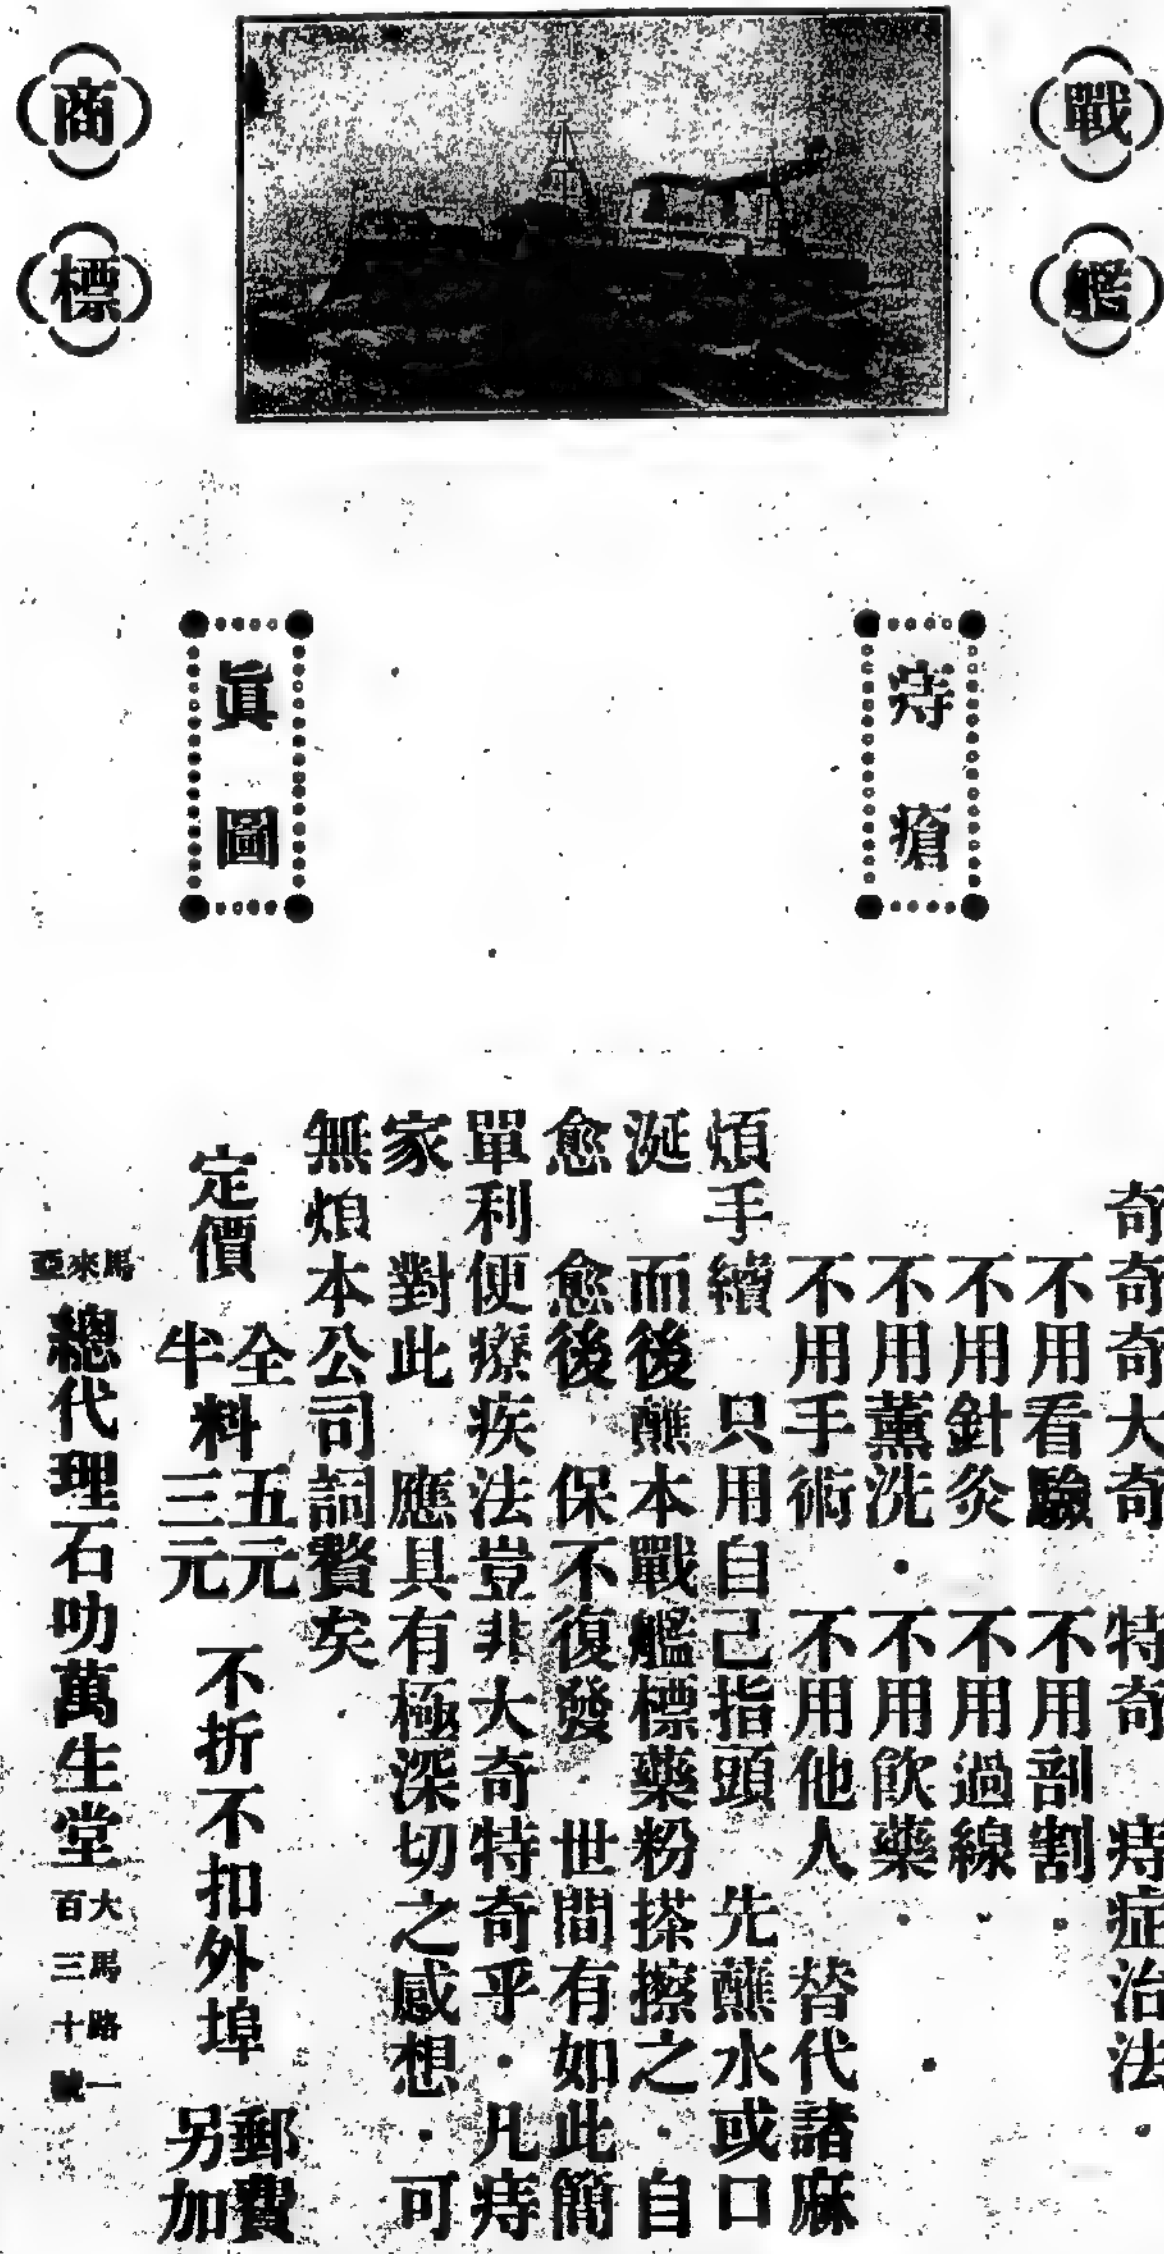 戰艦
商標
痔瘡
眞圖
奇奇奇大奇　特奇　痔症治法．
不用看驗　不用剖割．
不用針灸　不用過線．
不用薰洗．不用飲藥．
不用手術　不用他人　替代諸麻
煩手續　只用自己指頭　先蘸水或口
涎　而後蘸本戰艦標藥粉搽擦之．自
愈　愈後　保不復發　世間有如此簡
單利便療疾法豈非大奇特奇乎．凡痔
家　對此　應具有極深切之感想．可
無煩本公司詞贅矣
定價　全料五元　半料三元　不折不扣外埠　郵費另加
馬來亞
總代理石叻萬生堂
大馬路一
百三十號